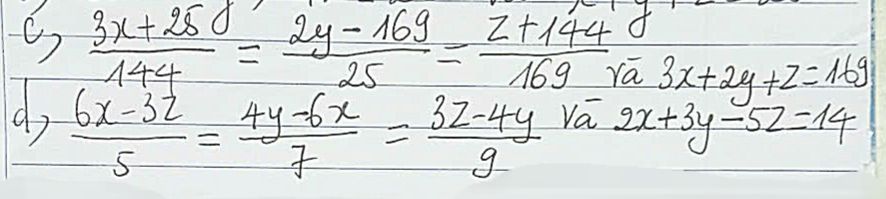 c, (3x+25)/144 = (2y-169)/25 = (z+144)/169 và 3x+2y+z=169
d, (6x-3z)/5 = (4y-6x)/7 = (3z-4y)/9 và 2x+3y-5z=14